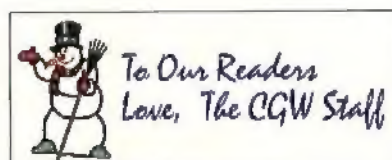 To Our Readers
Love, The CGW Staff